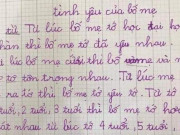 tình yêu của bố mẹ
từ lúc bố mẹ tớ học đại học
thân thì bố mẹ tớ đã yêu nhau.
Từ lúc bố mẹ cưới thì bố và mẹ
tớ tôn trọng nhau. Từ lúc mẹ
ra tớ thì bố mẹ tớ yêu tớ. Khi
, 2 tuổi, 3 tuổi thì bố mẹ tớ
át nhau từ lúc tớ 4 tuổi, 5 tuổi